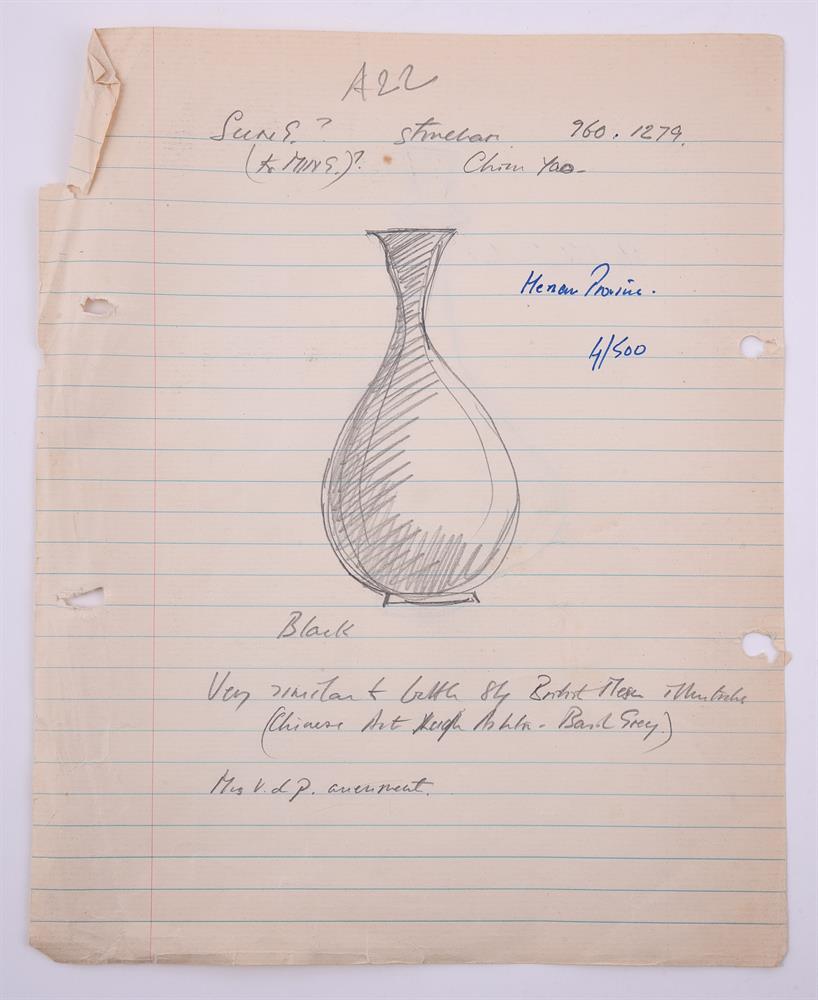 A22
SUNG.? stoneware 960. 1279.
(to MING.)? Chun Yao-
Henan Province.
4/500
Black
Very similar to bottle 84 British Museum illustrated
(Chinese Art Leigh Ashton - Basil Grey.)
Mrs V. d P.